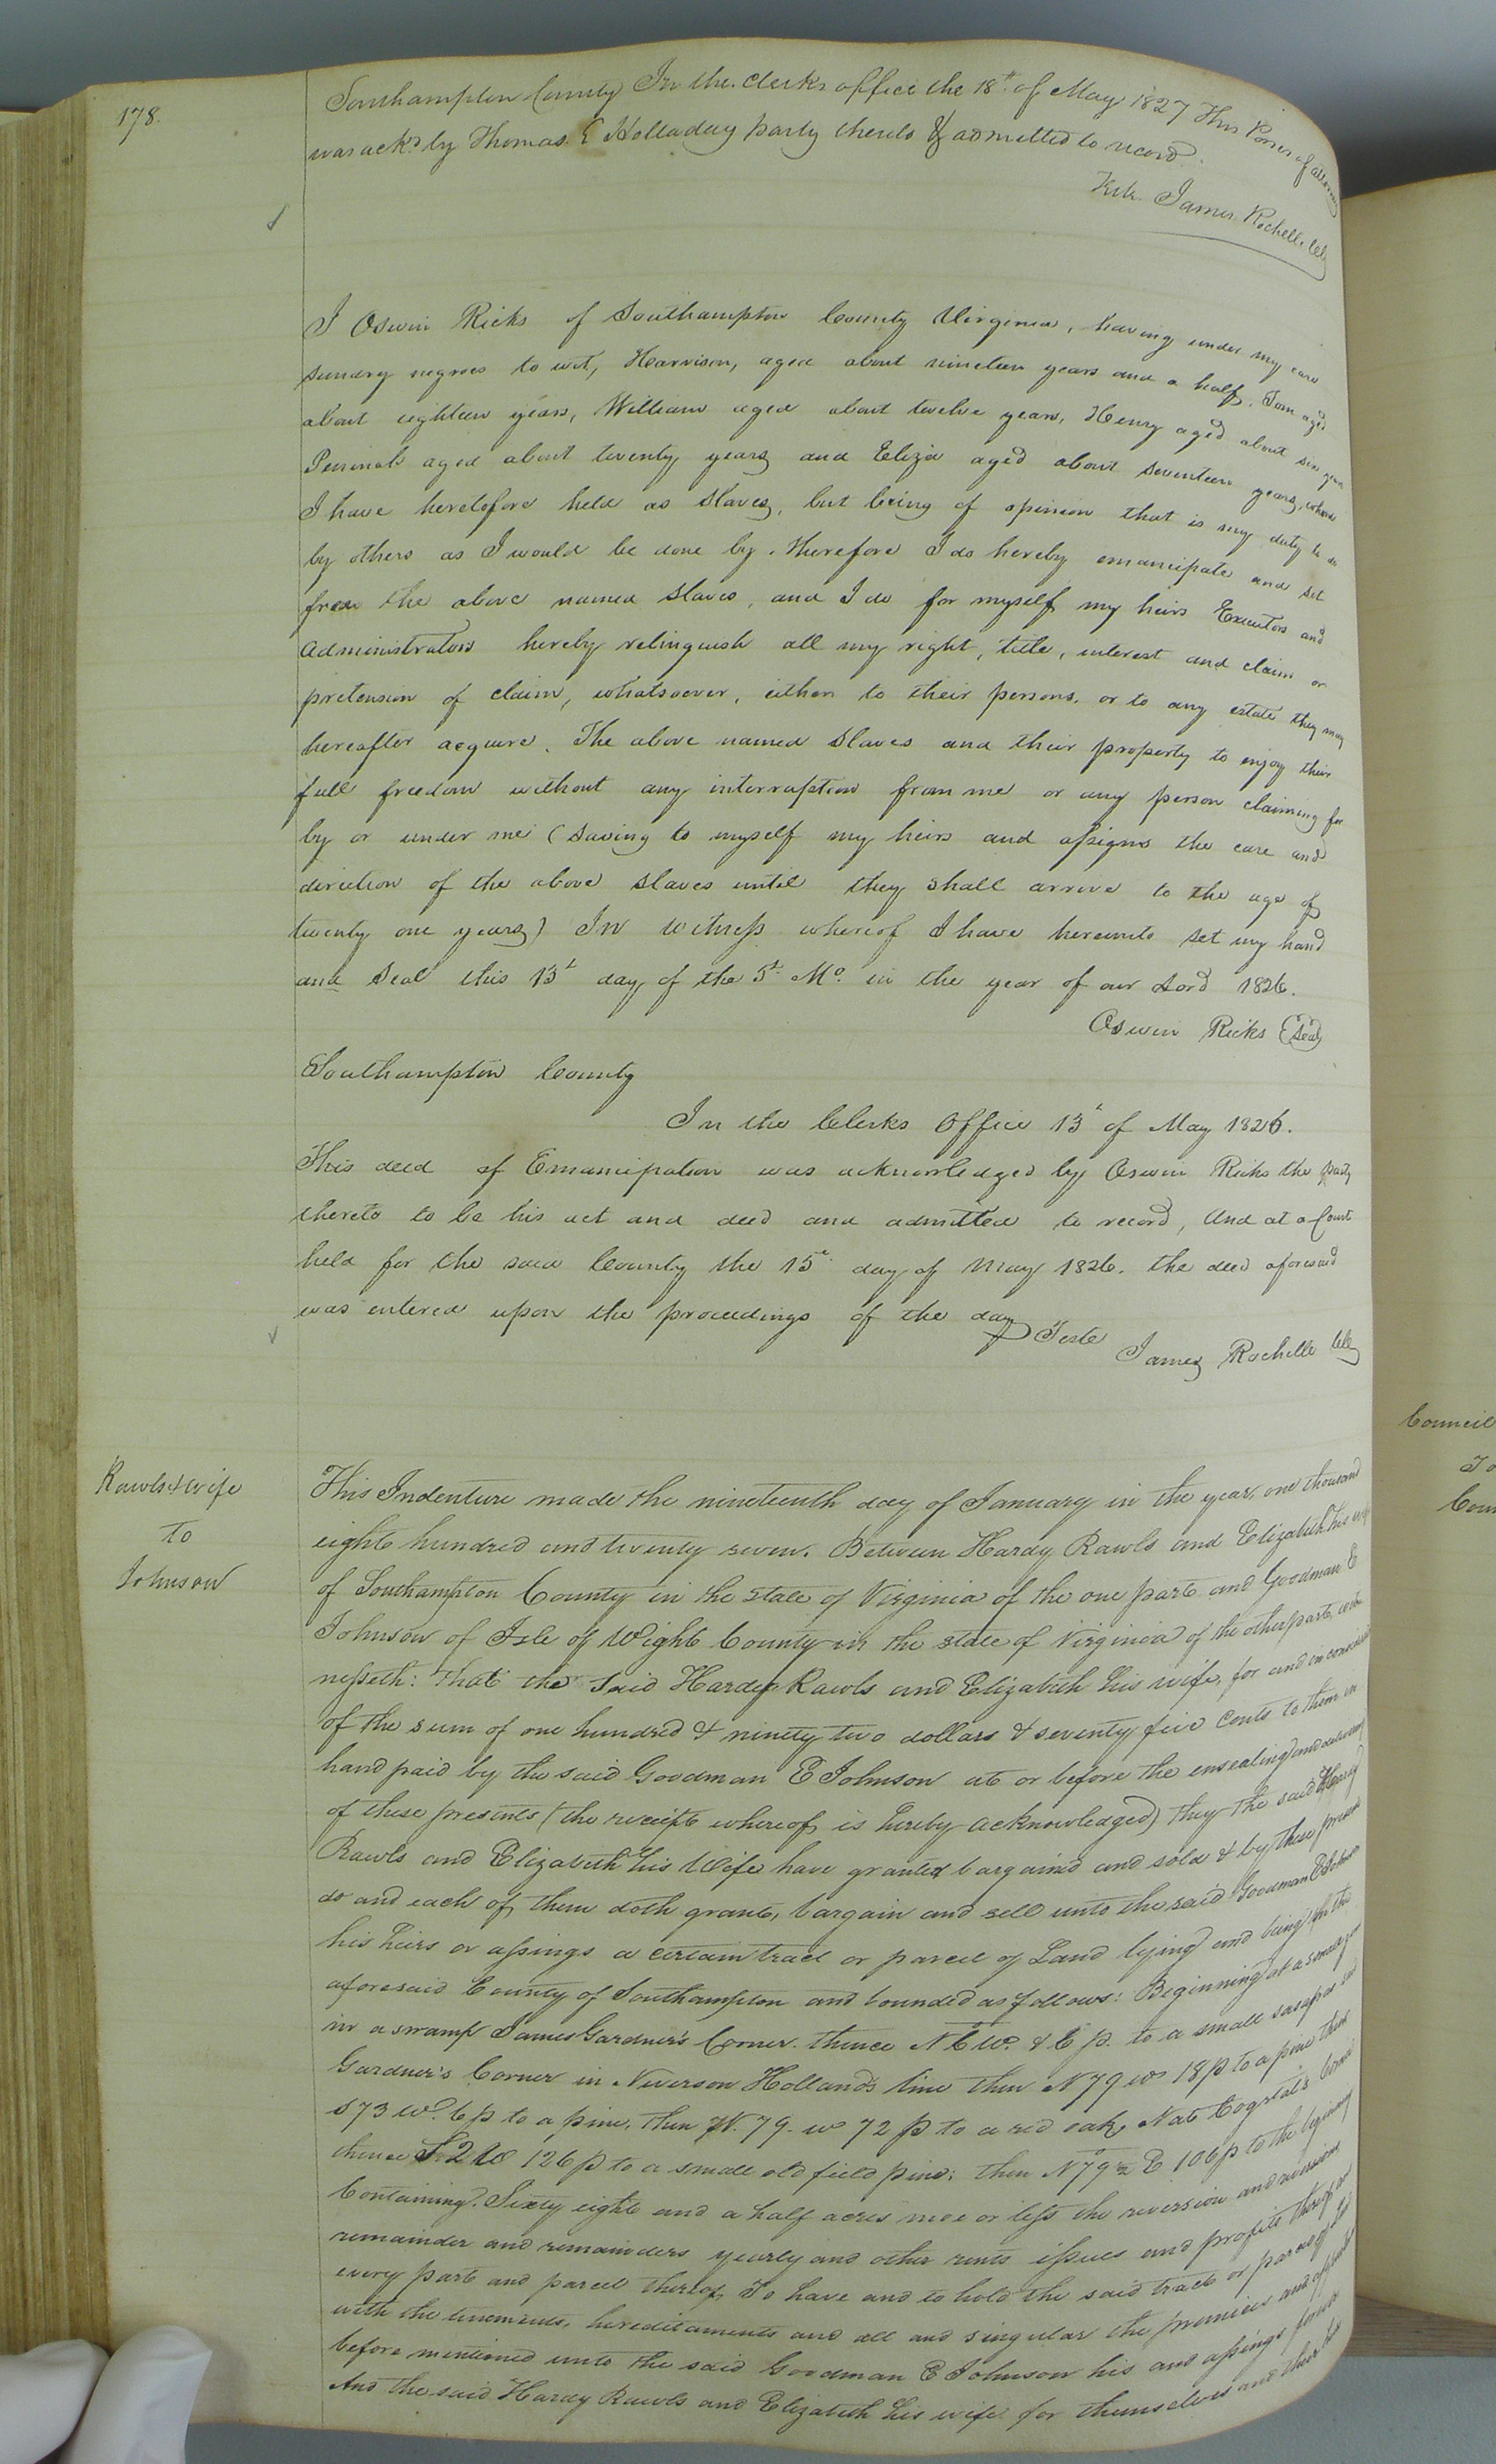 178.
Southampton County In the clerks office the 18th of May 1827 This Power of attorney
was ackd by Thomas E Holladay party thereto & admitted to record.
Teste James Rochelle Clk
I Oswin Ricks of Southampton County Virginia, having under my care
sundry negroes to wit, Harrison, aged about nineteen years and a half, Tom aged
about eighteen years, William aged about twelve years, Henry aged about six years
Peninah aged about twenty years and Eliza aged about seventeen years, whom
I have heretofore held as slaves, but being of opinion that is my duty to do
by others as I would be done by. Therefore I do hereby emancipate and set
free the above named slaves, and I do for myself my heirs Executors and
administrators hereby relinquish all my right, title, interest and claim or
pretension of claim, whatsoever, either to their persons, or to any estate they may
hereafter acquire. The above named slaves and their property to enjoy their
full freedom without any interruption from me or any person claiming for
by or under me (saving to myself my heirs and assigns the care and
direction of the above slaves until they shall arrive to the age of
twenty one years) In witness whereof I have hereunto set my hand
and seal this 13t day of the 5t Mo. in the year of our Lord 1826.
Oswin Ricks (Seal)
Southampton County
In the Clerks Office 13t of May 1826.
This deed of Emancipation was acknowledged by Oswin Ricks the party
thereto to be his act and deed and admitted to record, And at a Court
held for the said County the 15t day of May 1826. the deed aforesaid
was entered upon the proceedings of the day
Teste
James Rochelle Clk
Rawls & wife
To
Johnson
This Indenture made the nineteenth day of January in the year, one thousand
eight hundred and twenty seven. Between Hardy Rawls and Elizabeth his wife
of Southampton County in the state of Virginia of the one part and Goodman E
Johnson of Isle of Wight County in the state of Virginia of the other part, wit-
nesseth: That the said Hardy Rawls and Elizabeth his wife, for and in consideration
of the sum of one hundred & ninety two dollars & seventy five cents to them in
hand paid by the said Goodman E Johnson at or before the ensealing and delivery
of these presents (the receipt whereof is hereby acknowledged) they the said Hardy
Rawls and Elizabeth his Wife have granted bargained and sold & by these presents
do and each of them doth grant, bargain and sell unto the said Goodman E Johnson
his heirs or assings a certain tract or parcel of Land lying and being in the
aforesaid County of Southampton and bounded as follows: Beginning at a small
in a swamp James Gardner's Corner. thence N 6 W. & 6 p. to a small sasafras
Gardner's Corner in Neverson Holland's line then N 79 w 18 p to a pine then
S 73 w. 6 p to a pine, then N. 79. w 72 p to a red oak, Nat
thence S 2 W 126 p to a small old field pine; then N 79 ½ E 106 p to the begining
Containing. Sixty eight and a half acres more or less the reversion and reversions
remainder and remainders yearly and other rents issues and profits thereof and
every part and parcel thereof, To have and to hold the said tract or parcel of
with the tenements, hereditaments and all and singular the premises and
before mentioned unto the said Goodman E Johnson his and assings forever
And the said Hardy Rawls and Elizabeth his wife for themselves and their
Council
To